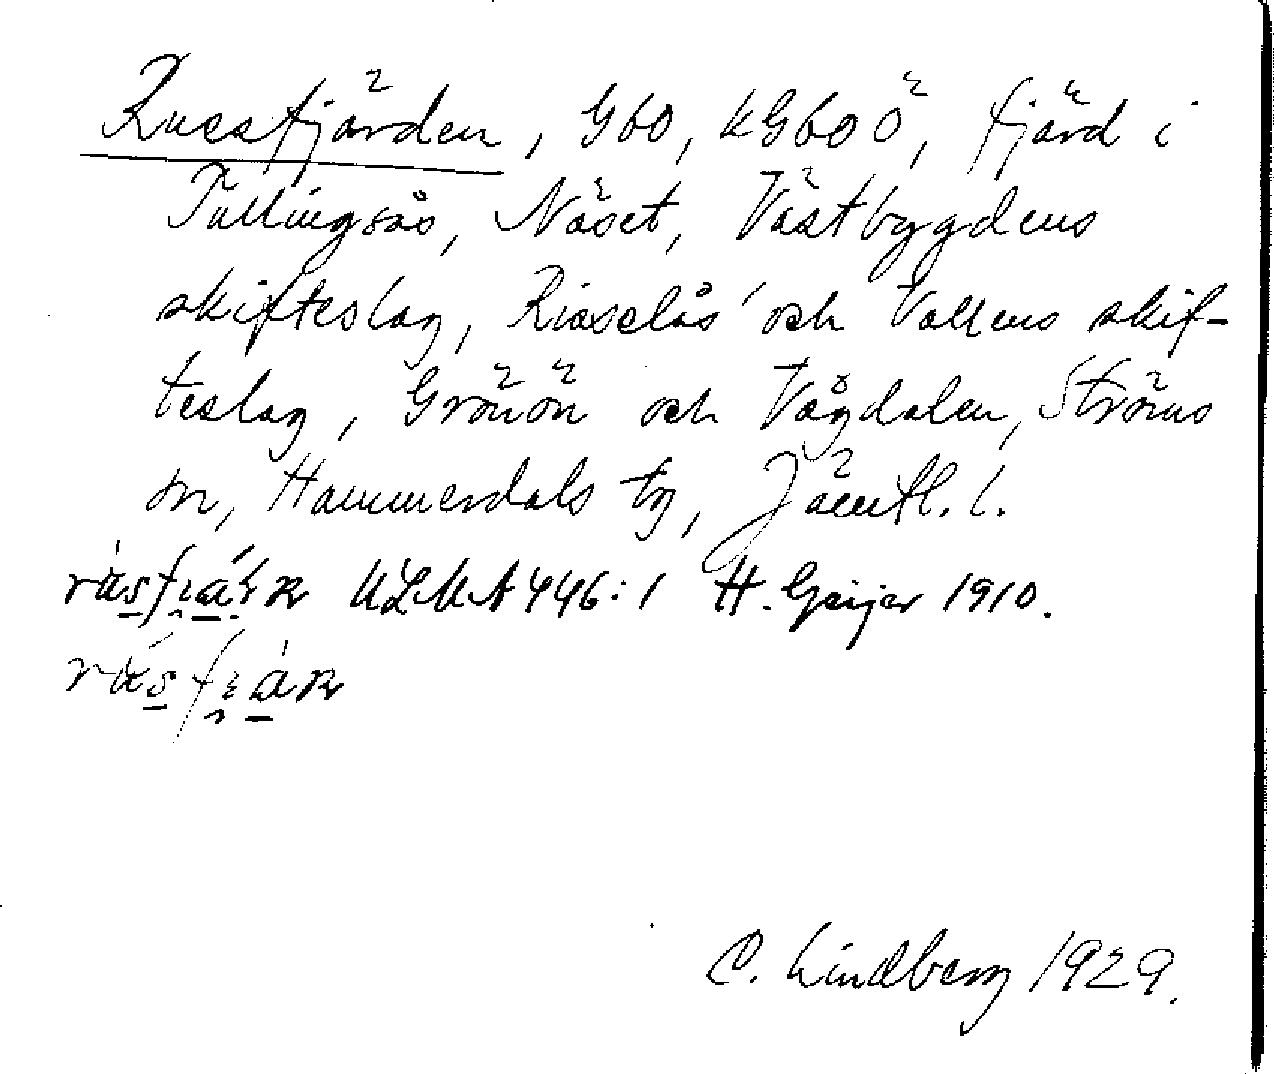 Russfjärden, G60, kG60Ö, fjärd i
Tullingsås, Näset, Västbygdens
skifteslag, Risselås och Vallens skif-
teslag, Grönön och Vågdalen, Ströms
sn, Hammerdals tg, Jämtl. l.
ULMA 446:1 H. Geijer 1910.
C. Lindberg 1929.